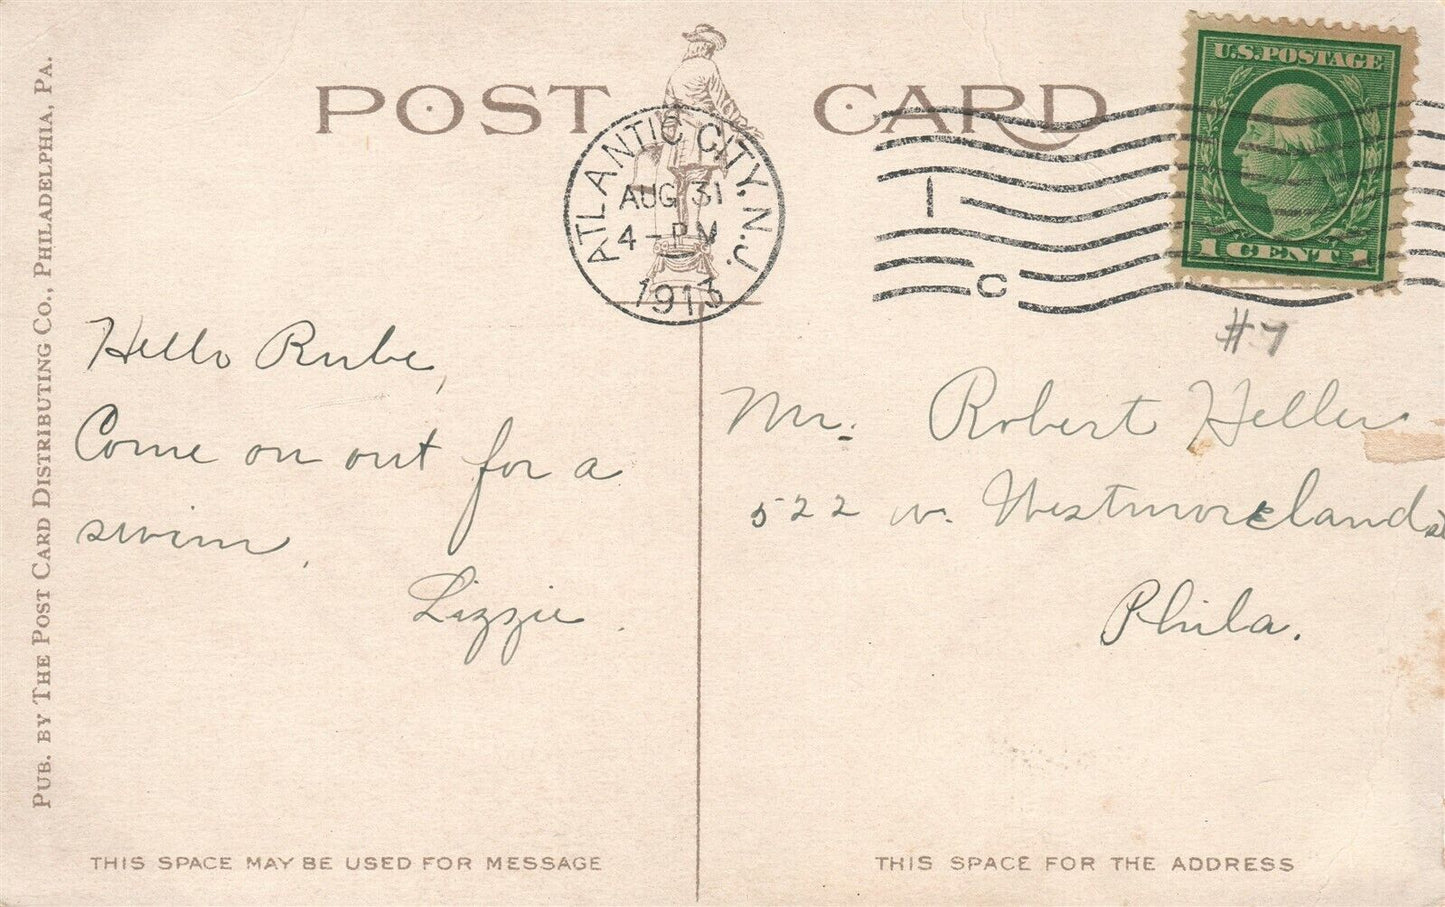 POST CARD
ATLANTIC CITY, N.J.
AUG 31
4-PM
1913
1
C
U.S. POSTAGE
1 CENT 1
#7
Hello Rube,
Come on out for a
swim,
Lizzie.
Mr. Robert Heller
522 W. Westmoreland st
Phila.
PUB. BY THE POST CARD DISTRIBUTING CO., PHILADELPHIA, PA.
THIS SPACE MAY BE USED FOR MESSAGE
THIS SPACE FOR THE ADDRESS